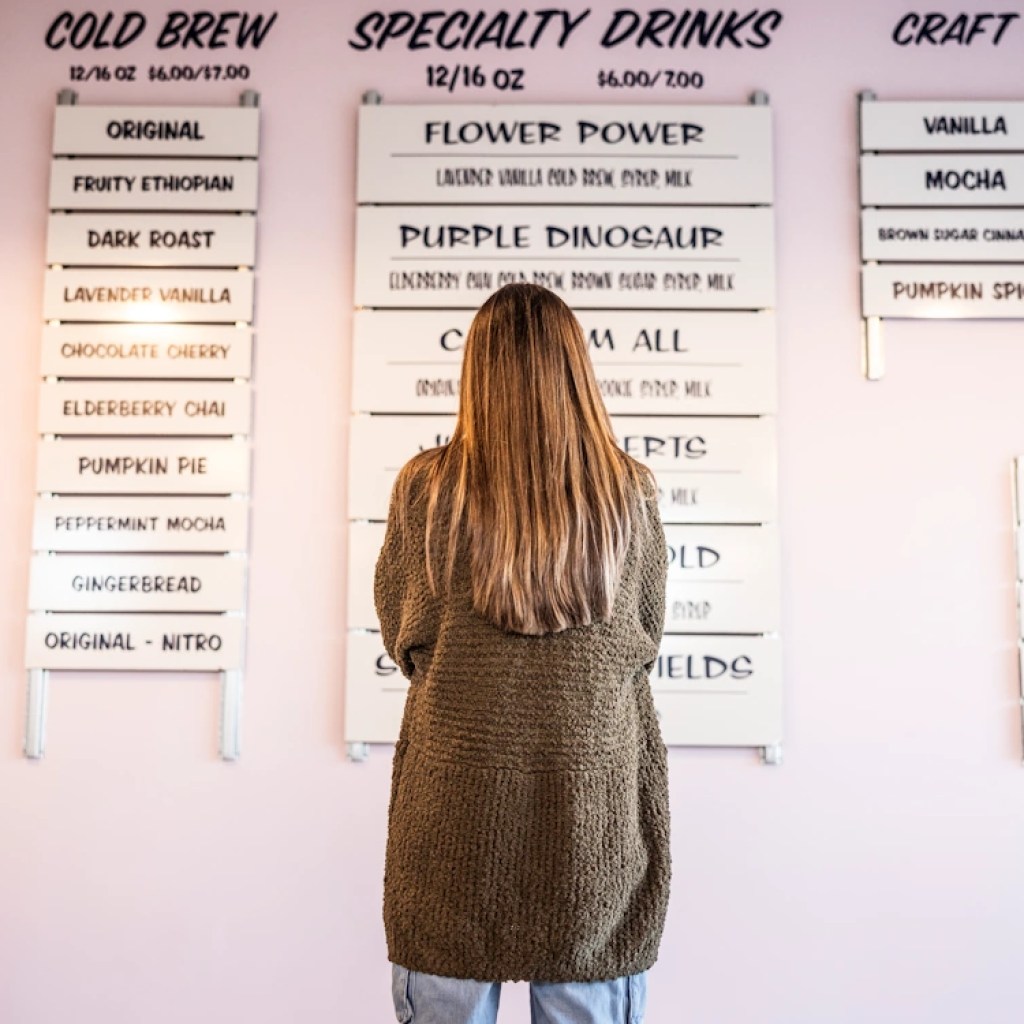 COLD BREW
12/16 OZ $6.00/$7.00
ORIGINAL
FRUITY ETHIOPIAN
DARK ROAST
LAVENDER VANILLA
CHOCOLATE CHERRY
ELDERBERRY CHAI
PUMPKIN PIE
PEPPERMINT MOCHA
GINGERBREAD
ORIGINAL - NITRO
SPECIALTY DRINKS
12/16 OZ $6.00/7.00
FLOWER POWER
LAVENDER VANILLA COLD BREW, SYRUP, MILK
PURPLE DINOSAUR
ELDERBERRY CHAI COLD BREW, BROWN SUGAR SYRUP, MILK
M ALL
SYRUP, MILK
ERTS
MILK
OLD
SYRUP
IELDS
CRAFT
VANILLA
MOCHA
BROWN SUGAR CINNA
PUMPKIN SPI